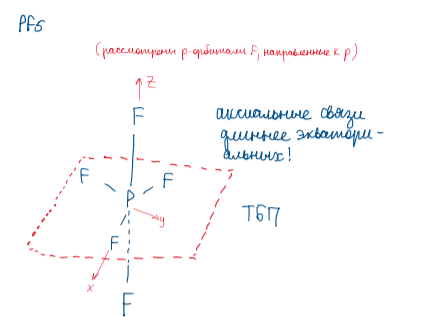 PF5
(рассмотрены р-орбитали F, направленные к р)
z
F
аксиальные связи
длиннее экватори-
альных!
F F
P
ТБП
y
F
x
F